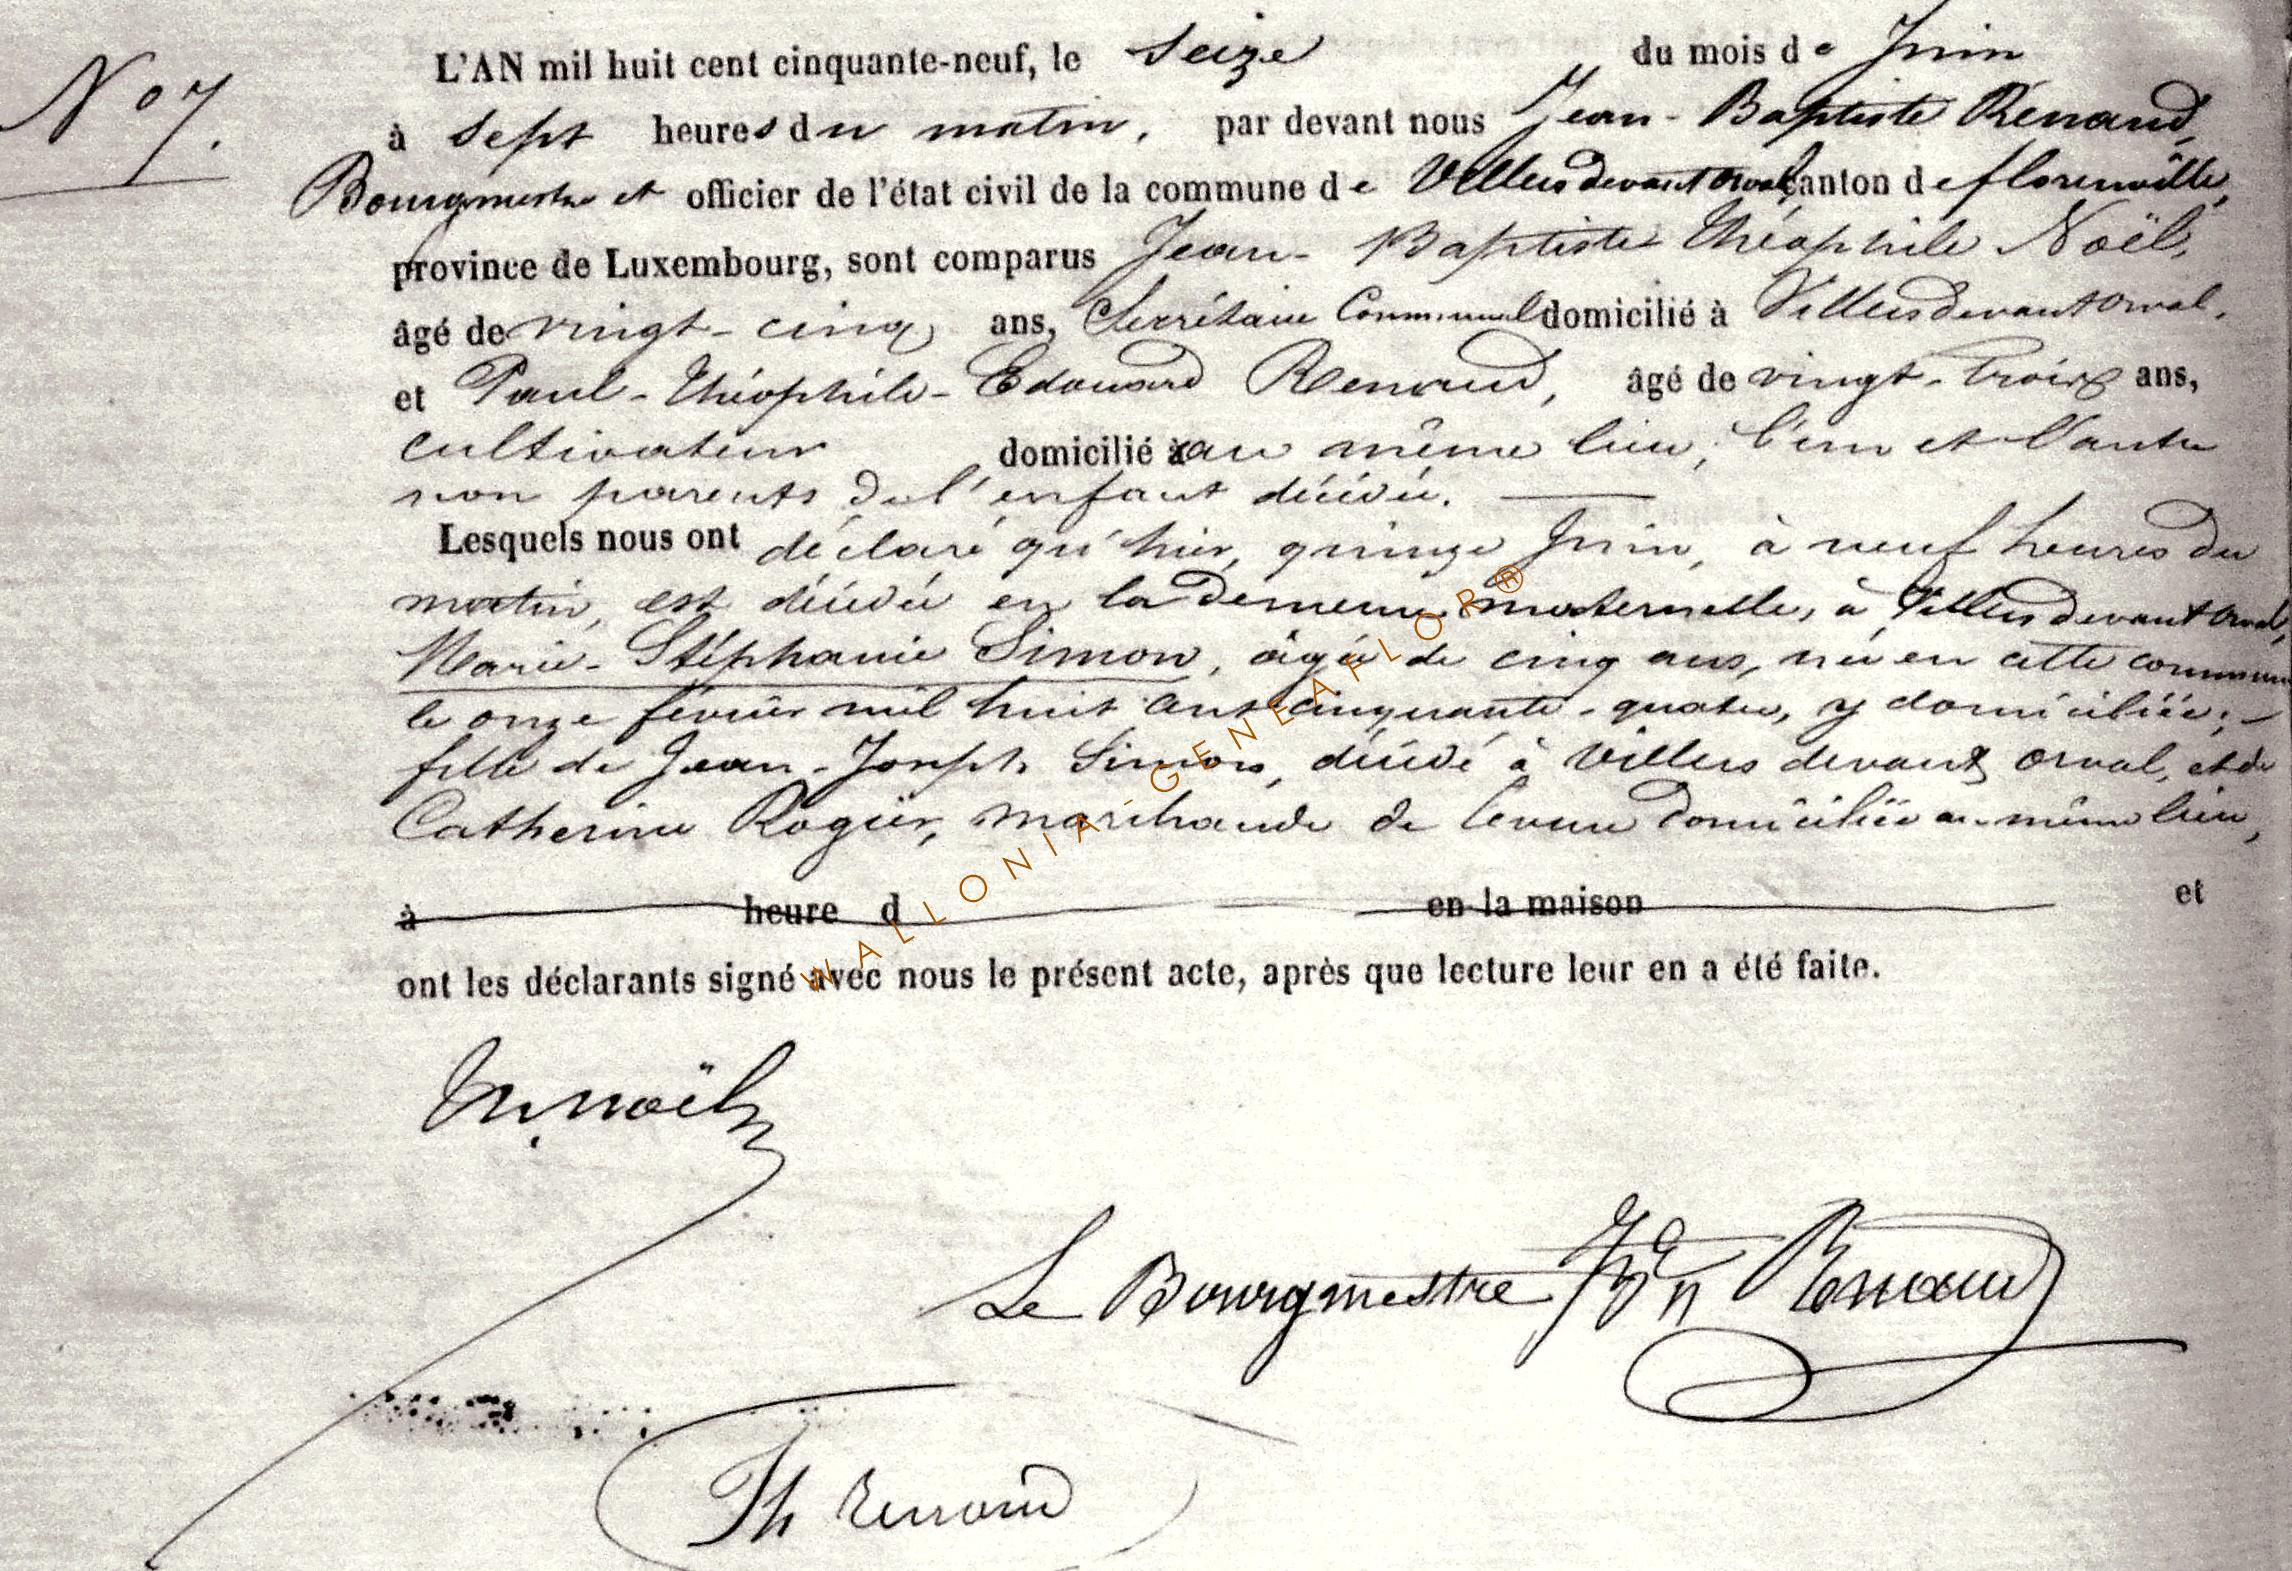 N° 7.
L'AN mil huit cent cinquante-neuf, le seize du mois de Juin
à sept heures du matin, par devant nous Jean-Baptiste Renaud,
Bourgmestre et officier de l'état civil de la commune de Villers devant Orval, canton de florenville,
province de Luxembourg, sont comparus Jean-Baptiste Théophile Noël,
âgé de vingt-cinq ans, Secrétaire Communal domicilié à Villers devant Orval,
et Paul-Théophile-Edouard Renaud, âgé de vingt-trois ans,
cultivateur domicilié à au même lieu, l'un et l'autre
non parents de l'enfant décédée.
Lesquels nous ont déclaré qu'hier, quinze Juin, à neuf heures du
matin, est décédée en la demeure maternelle, à Villers devant Orval,
Marie-Stéphanie Simon, âgée de cinq ans, née en cette commune
le onze février mil huit cent cinquante-quatre, y domiciliée;
fille de Jean-Joseph Simon, décédé à Villers devant Orval, et de
Catherine Rogier, marchande de levure domiciliée au même lieu,
à heure d en la maison et
ont les déclarants signé avec nous le présent acte, après que lecture leur en a été faite.
Noël
Le Bourgmestre JBn Renaud
Th Renaud
WALLONIA-GENEAFLOR®